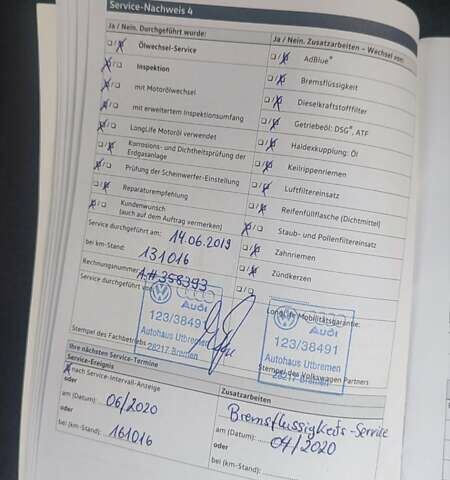 Service-Nachweis 4
Ja / Nein. Durchgeführt wurde:
Ölwechsel-Service
Inspektion
mit Motorölwechsel
mit erweitertem Inspektionsumfang
LongLife Motoröl verwendet
Korrosions- und Dichtheitsprüfung der
Erdgasanlage
Prüfung der Scheinwerfer-Einstellung
Reparaturempfehlung
Kundenwunsch
(auch auf dem Auftrag vermerken)
Service durchgeführt am: 14.06.2019
bei km-Stand: 131016
Rechnungsnummer: A# 358393
Service durchgeführt von:
Audi
123/38491
Autohaus Utbremen
28217 Bremen
Stempel des Fachbetriebs
Ja / Nein. Zusatzarbeiten – Wechsel von:
AdBlue®
Bremsflüssigkeit
Dieselkraftstofffilter
Getriebeöl: DSG®, ATF
Haldexkupplung: Öl
Keilrippenriemen
Luftfiltereinsatz
Reifenfüllflasche (Dichtmittel)
Staub- und Pollenfiltereinsatz
Zahnriemen
Zündkerzen
LongLife Mobilitätsgarantie:
Audi
123/38491
Autohaus Utbremen
28217 Bremen
Stempel des Volkswagen Partners
Ihre nächsten Service-Termine
Service-Ereignis
nach Service-Intervall-Anzeige
oder
am (Datum): 06/2020
oder
bei (km-Stand): 161016
Zusatzarbeiten
Bremsflüssigkeits-Service
am (Datum): 04/2020
oder
bei (km-Stand):